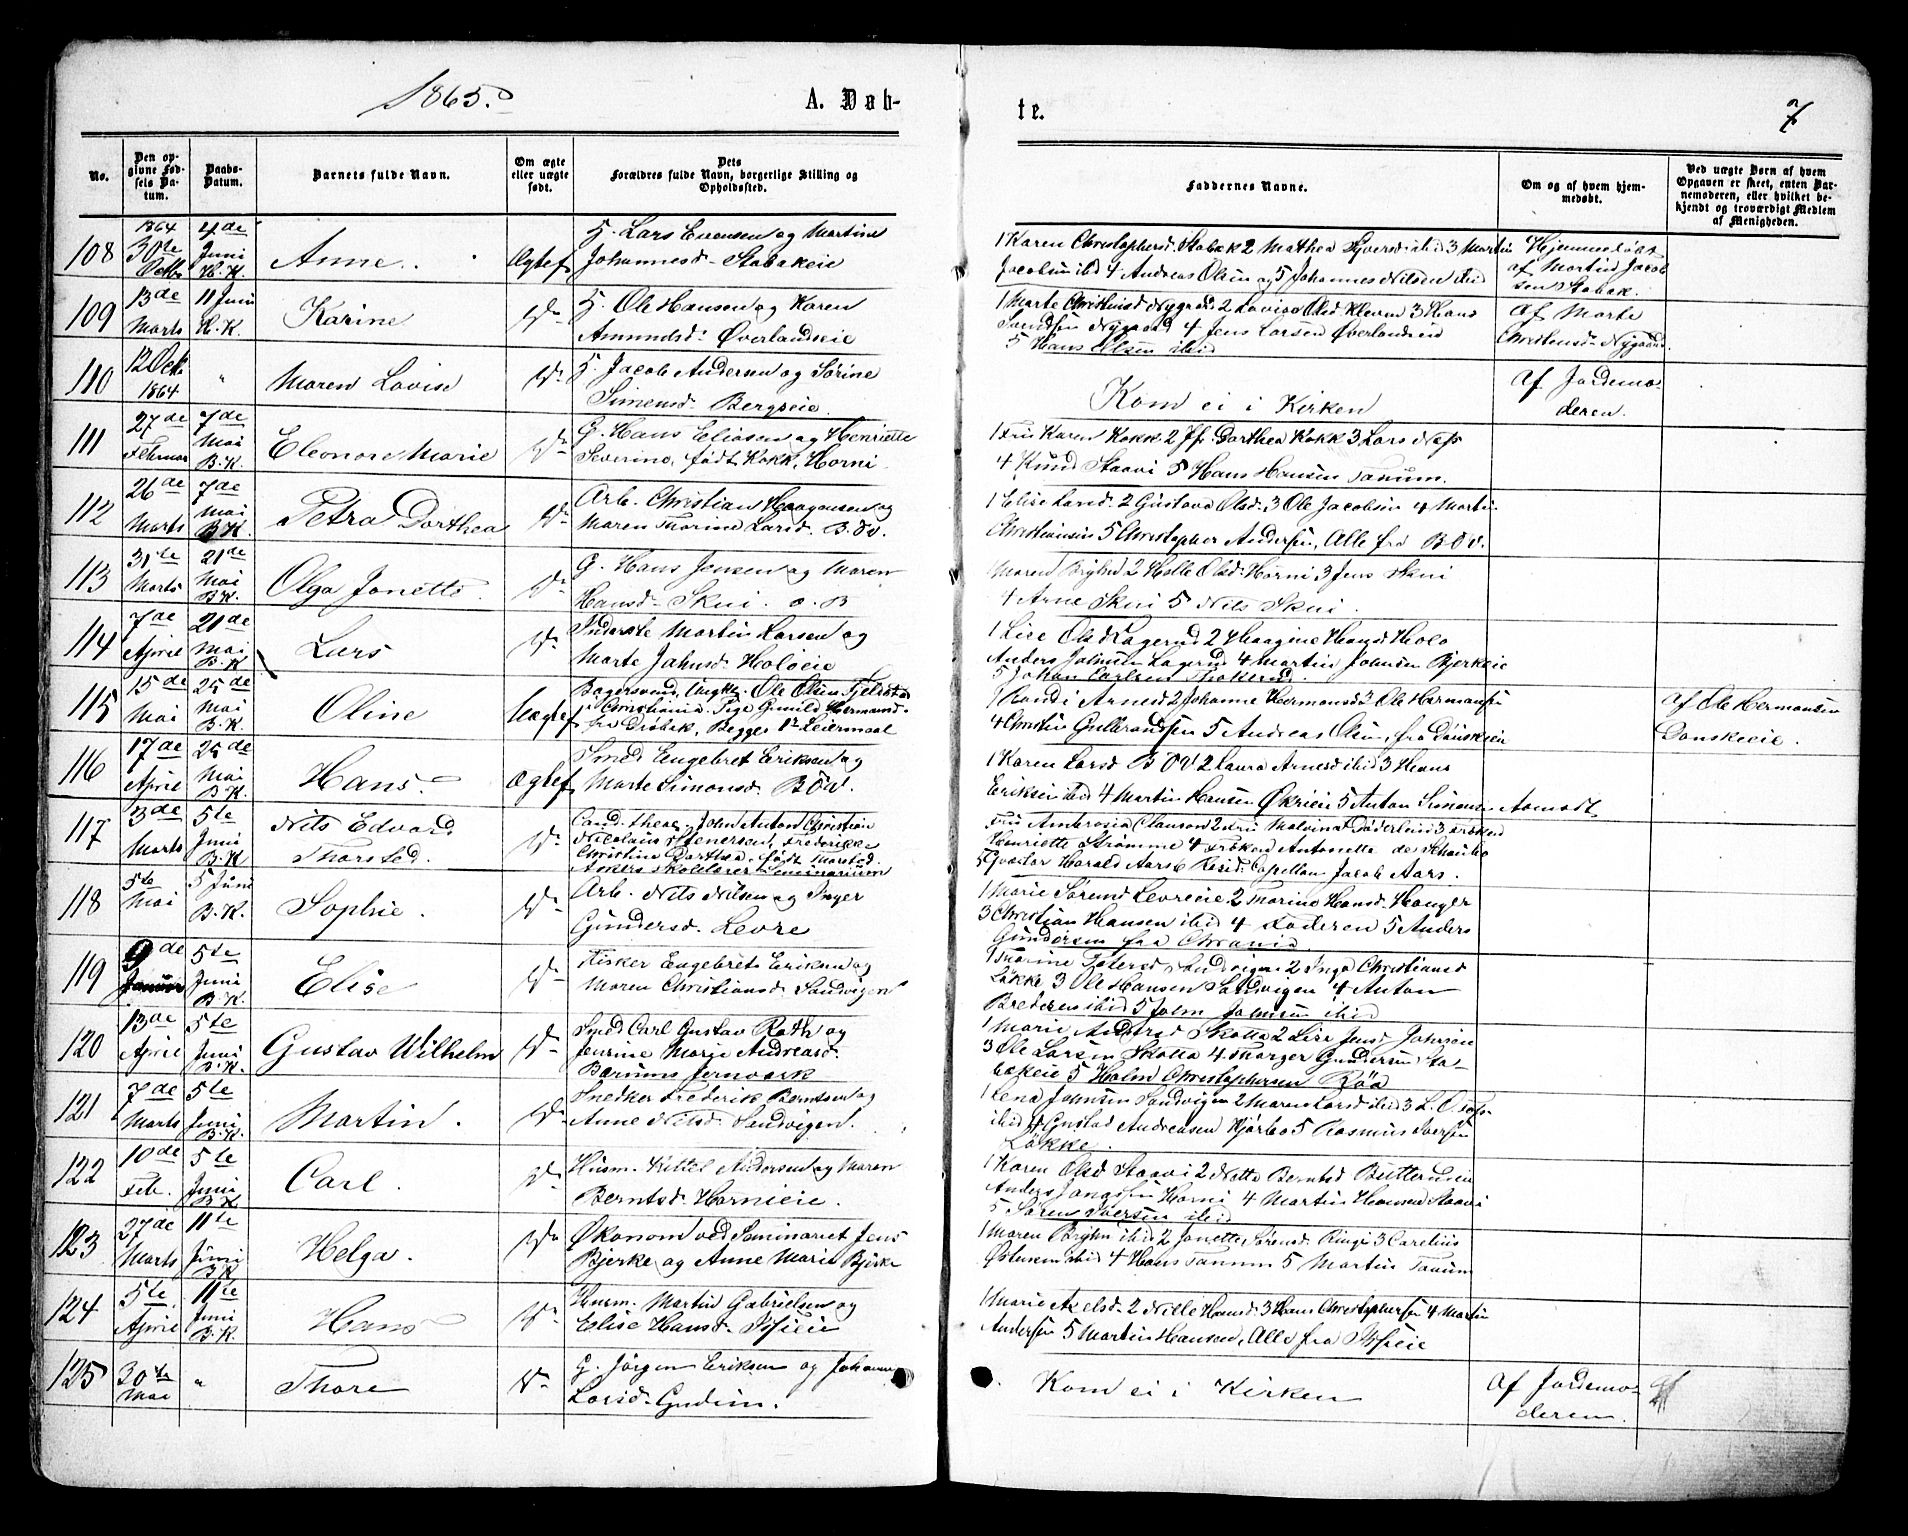 1865.
A. Døb-
te.
7
No.
Den op-
givne Fød-
sels Da-
tum.
Daabs-
Datum.
Barnets fulde Navn.
Om ægte
eller uægte
født.
Dets
Forældres fulde Navn, borgerlige Stilling og
Opholdssted.
Faddernes Navne.
Om og af hvem hjem-
medøbt.
Ved uægte Børn af hvem
Opgaven er skeet, enten Bar-
nemoderen, eller hvilket be-
kjendt og troværdigt Medlem
af Menigheden.
108
1864
30te
Octb
4de
Juni
H.K.
Anne.
Ægtef
Lars Evensen og Martine
Johannesd. Stabakeie
1 Karen Christophersd. Stabæk 2 Mathea ibid 3 Martin
Jacobsen ibid 4 Andreas Olsen og 5 Johannes Nilsen ibid
Hjemmedøbt
af Martin Jacob
sen Stabak.
109
13de
Marts
11 Juni
H.K.
Karine
Do
Ole Hansen og Karen
Amundsd. Øverlandseie
1 Marte Christensd Nygaard 2 Lovise Olsd 3 Hans
Svendsen Nygaard 4 Jens Larsen Øverlandseie
5 Hans Olsen ibid
af Marte
Christensd. Nygaard.
110
12 Oct.
1864
"
Maren Lovise
Do
Jacob Andersen og Sørine
Simensd. Bergseie.
Kom ei i Kirken
af Jordemo-
deren.
111
27de
Februar
7de
Mai
B.K.
Eleonore Marie
Do
G. Hans Eliasen og Henriette
Severine, født Kokk, Horni
1 Fru Karen Kokk 2 Jfr. Dorthea Kokk 3 Lars Næss
4 Knud Staavi 5 Hans Hansen Tanum.
112
26de
Marts
7de
Mai
B.K.
Petra Dorthea
Do
Arb. Christian Haagensen og
Maren Thorine Larsd. B. Øv.
1 Elise Larsd. 2 Gustava Olsd. 3 Ole Jacobsen 4 Martin
Christiansen 5 Christopher Andersen, Alle fra B Ø V.
113
31te
Marts
21de
Mai
B.K.
Olga Janette
Do
G. Hans Jensen og Maren
Hansd. Skui. o. B
Maren Bryhn 2 Helle Olsd. Horni 3 Jens Skui
4 Arne Skui 5 Nils Skui.
114
7de
April
21de
Mai
B.K.
Lars
Do
Inderste Martin Larsen og
Marte Jahnsd. Holøeie
1 Lise Olsd Lagerud 2 Haagine Hansd Holo
Anders Johnsen Lagerud 4 Martin Johnsen Bjerkeie
5 Johan Carlsen
115
15de
Mai
25de
Mai
B.K.
Oline
Uægtef
Bøgersvend, Ungk. Ole Olsen Fjeldstad
Christiania. Pige Gunild Hermansd.
fra Drøbak, Begges 1te Leiermaal
1 Randi Arnesd 2 Johanne Hermansd 3 Ole Hermansen
4 Christen Gulbrandsen 5 Andreas Olsen, fra Dønskieie
af Ole Hermansen
Dønskieie.
116
17de
April
25de
Mai
B.K.
Hans.
Ægtef
Smed Engebret Eriksen og
Marte Simonsd. B Ø V.
1 Karen Larsd B ØV 2 Laura Arnesd ibid 3 Hans
Eriksen ibid 4 Martin Hansen Økrieie 5 Anton Simensen Asmodt
117
13de
Marts
5te
Juni
B.K.
Nils Edvard
Thorsted.
Do
Cand. theol. John Anton Christian
Nicolaus Stenersen, Frederikke
Christine Dorthea, født Monsted.
Askers Skolelærer Seminarium
Fru Ambrosia Clauson 2 Fru Malvina Døderlein 3 Frøken
Henriette Strømme 4 Frøken Antonette de Schouboe
5 Qvæstor Harald Aars 6 Resid. Capellan Jacob Aars.
118
5te
Mai
5 Juni
B.K.
Sophie.
Do
Arb. Nils Nilsen og Inger
Gundersd. Levre
1 Marie Sørensd Levreeie 2 Thorine Hansd. Hauger
3 Christian Hansen ibid 4 Faderen 5 Anders
Gundersen fra Chrania.
119
9de
Januar
5te
Juni
B.K.
Elise
Do
Fisker Engebret Eriksen og
Maren Christiansd. Sandvigen
Sandvigen 2 Inga Christiansd
Løkke 3 Ole Hansen Sandvigen 4 Anton
Bredesen ibid 5 John Johnsen ibid
120
13de
April
5te
Juni
B.K.
Gustav Wilhelm
Do
Smed Carl Gustav Roth og
Jensine Marie Andreasd.
Bærums Jernværk
1 Marie Andersd Skotta 2 Lise Jensd Johrseie
3 Ole Larsen Skotta 4 Torger Gundersen Sta-
bækeie 5 Halm Christophersen Røa
121
7de
Marts
5te
Juni
B.K.
Martin.
Do
Snedker Frederik Berntsen og
Anne Nilsd. Sandvigen.
1 Lena Johnsen Sandvigen 2 Maren Larsd ibid 3 L. O.
ibid 4 Gustad Andreasen Hjørbo 5 Rasmus Iversen
Løkke.
122
10de
Feb.
5te
Juni
B.K.
Carl.
Do
Husm. Kittel Andersen og Maren
Berntsd. Hornieie.
1 Karen Olsd Staavi 2 Netta Berntsd Butterudeie
Anders Horni 4 Martin Hansen Staavi
5 Søren Iversen ibid
123
27de
Marts
11te
Juni
B.K
Helga.
Do
Økonom ved Seminariet Jens
Bjerke og Anne Marie Bjerke
1 Maren Bryhn ibid 2 Janette Sørensd. Ringi 3 Carelius
Østensen ibid 4 Hans Tanum 5 Martin Tanum
124
5te
April
11te
Juni
B.K.
Hans
Do
Husm. Martin Gabrielsen og
Elise Hansd.
1 Marie Axelsd. 2 Nille Hansd. 3 Hans Christophersen 4 Martin
Andersen 5 Martin Hansen, Alle fra
125
30te
Mai
"
Thore
Do
G. Jørgen Eriksen og Johanne
Larsd. Gudim.
Kom ei i Kirken
af Jordemo-
deren.
af